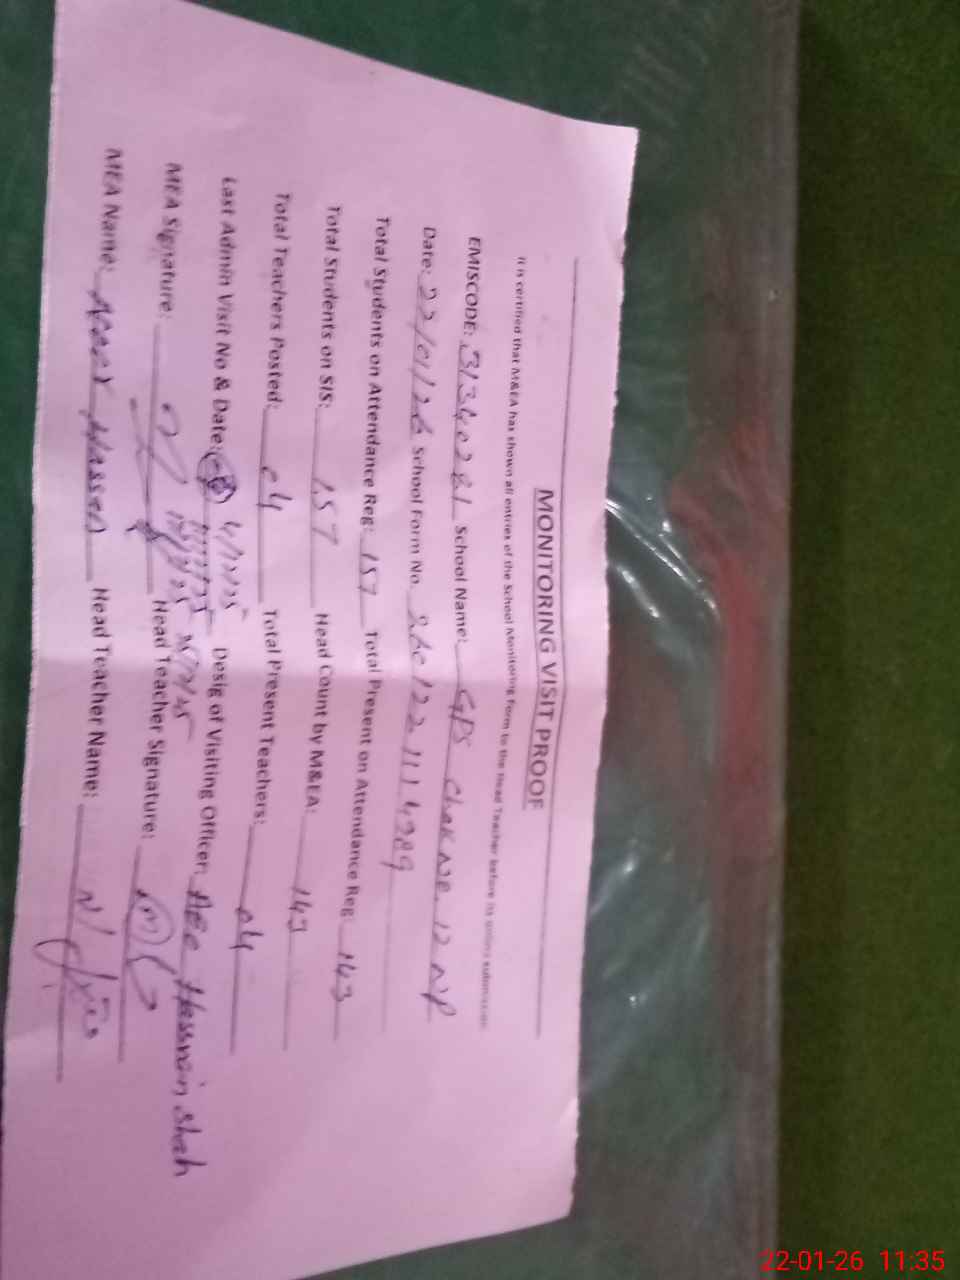 MONITORING VISIT PROOF
It is certified that M&EA has shown all entries of the School Monitoring Form to the Head Teacher before its online submission.
EMISCODE: 31340281 School Name: GPS Chak No. 12 NP
Date: 22/01/26 School Form No.
Total Students on Attendance Reg: 157 Total Present on Attendance Reg: 143
Total Students on SIS: 157 Head Count by M&EA: 143
Total Teachers Posted: 04 Total Present Teachers: 04
Last Admin Visit No & Date: Desig of Visiting Officer: AEO Hassnain Shah
MEA Signature: Head Teacher Signature:
MEA Name: Hassan Head Teacher Name:
22-01-26 11:35